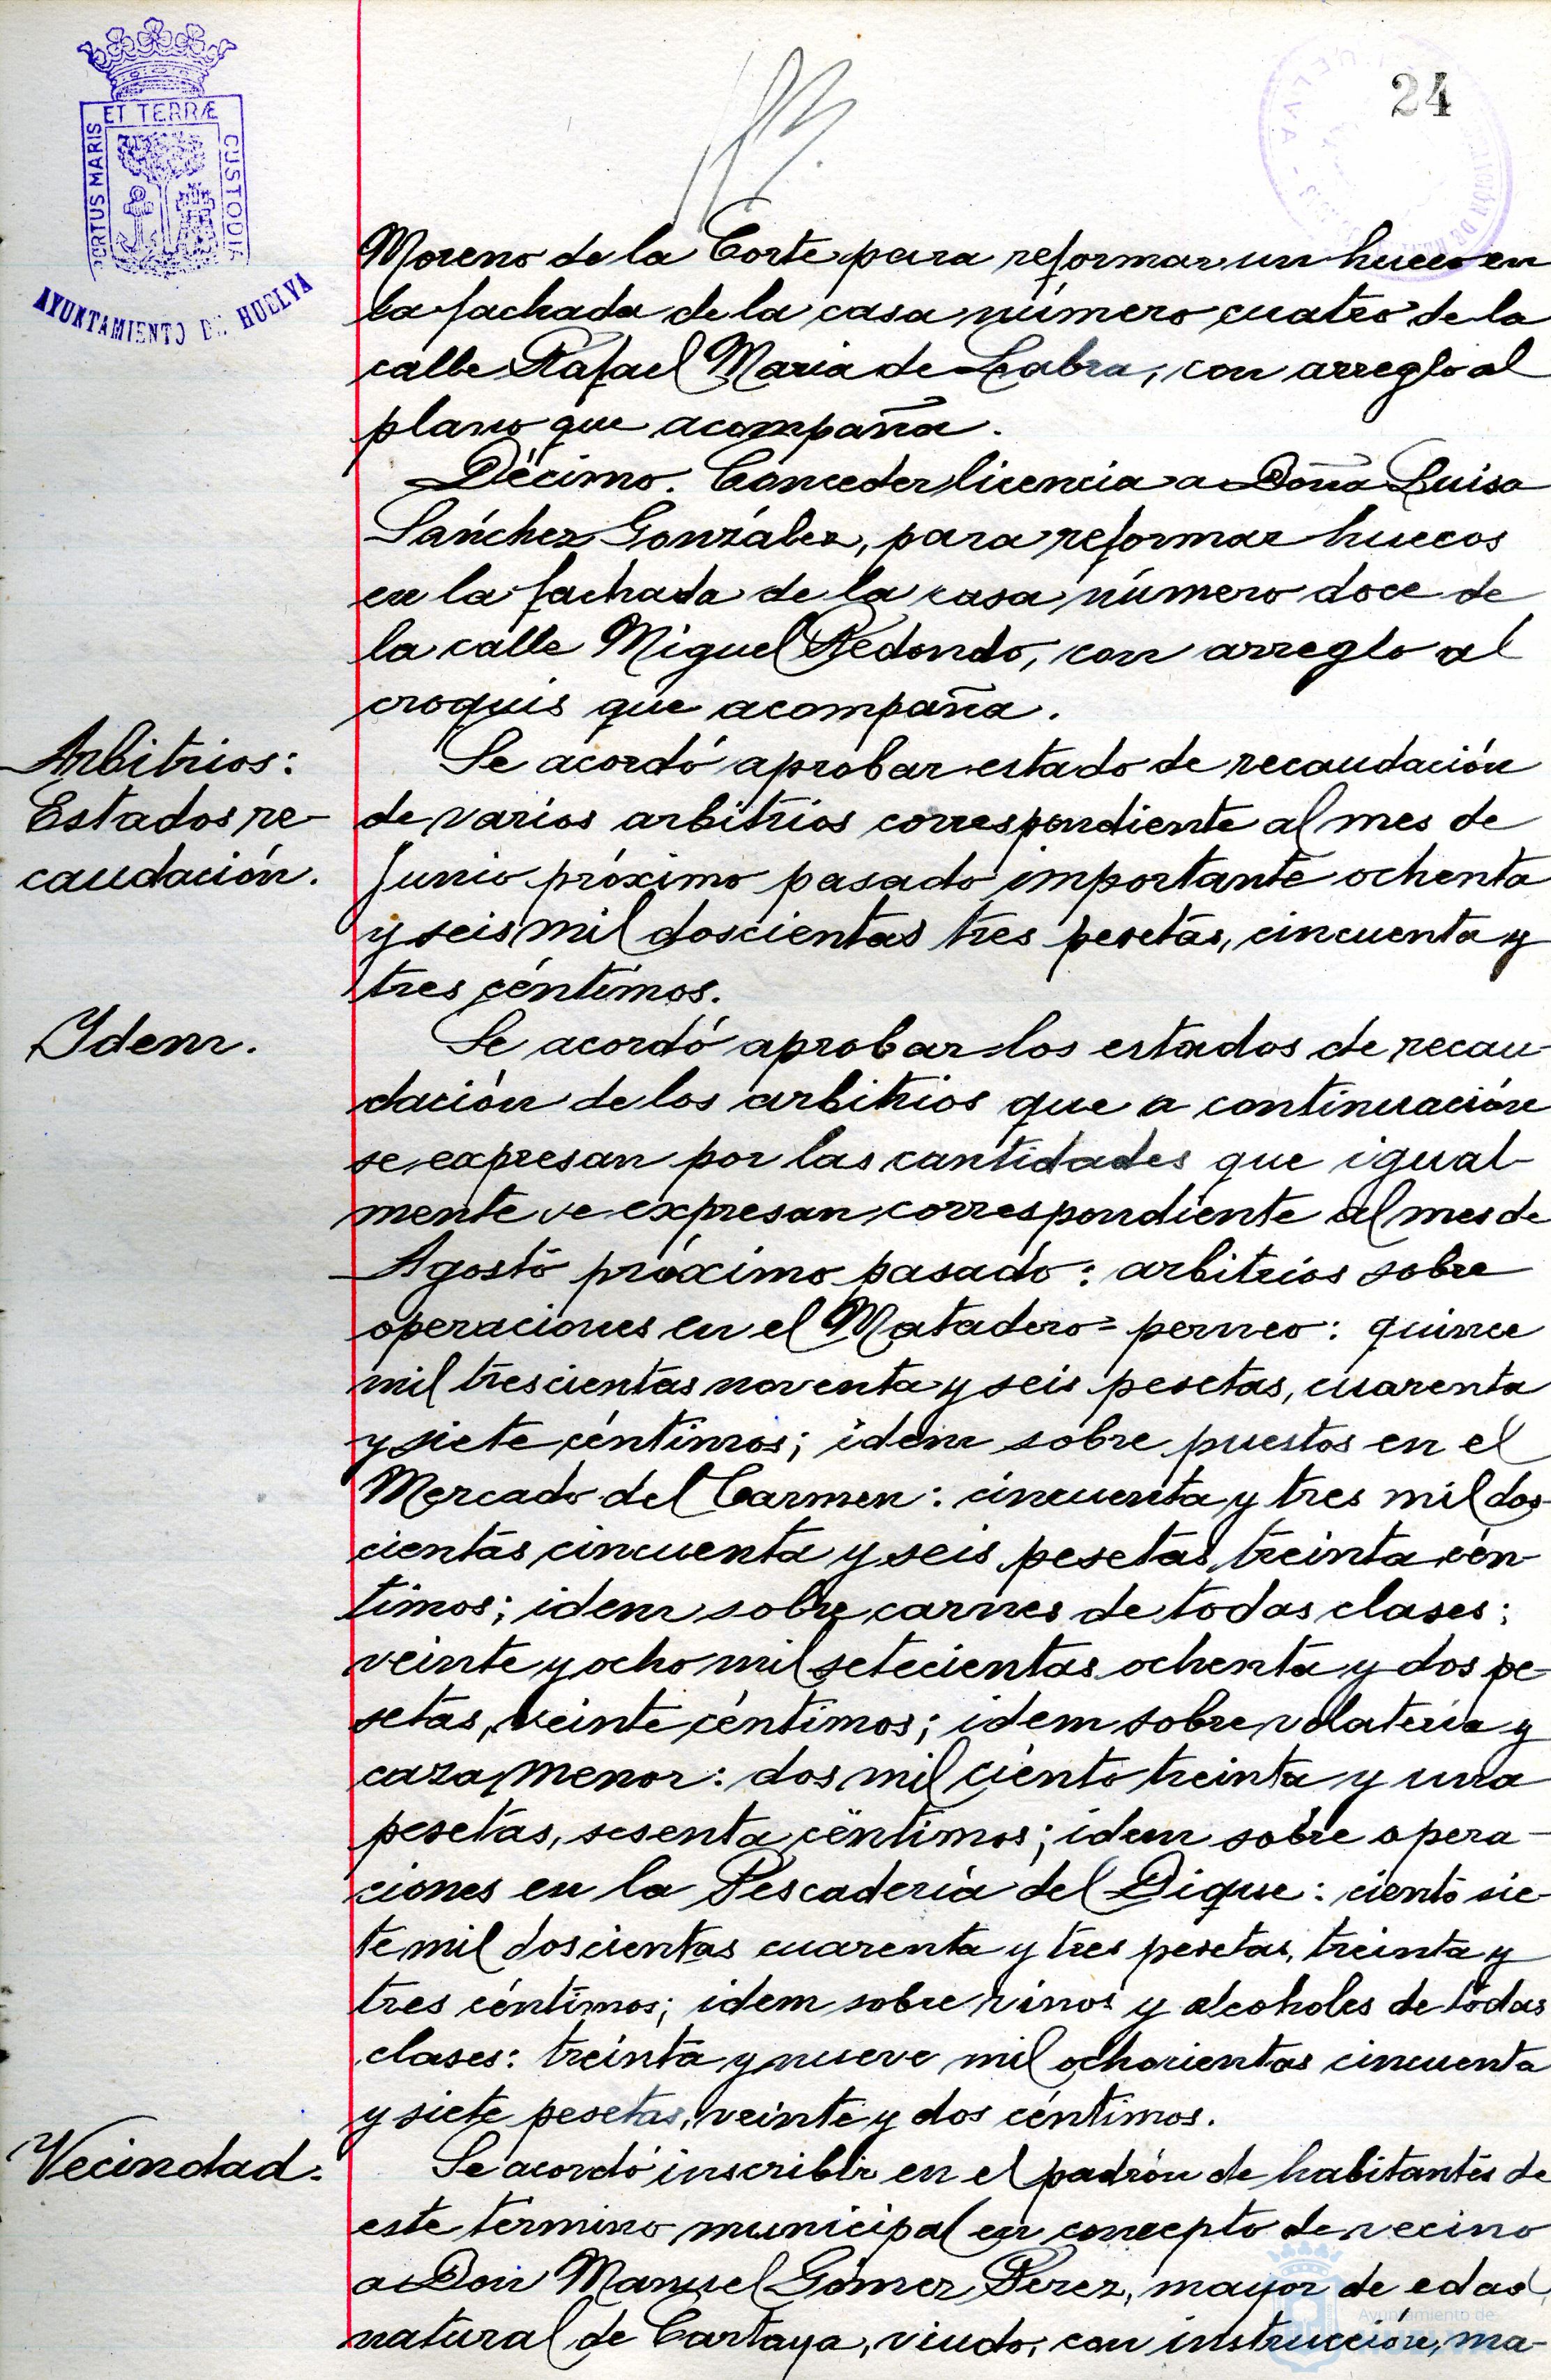 24
ET TERRÆ
PORTUS MARIS
CUSTODIA
AYUNTAMIENTO DE HUELVA
Moreno de la Corte para reformar un hueco en
la fachada de la casa número cuatro de la
calle Rafael Maria de Labra, con arreglo al
plano que acompaña.
Décimo. Conceder licencia a Doña Luisa
Sánchez González, para reformar huecos
en la fachada de la casa número doce de
la calle Miguel Redondo, con arreglo al
croquis que acompaña.
Arbitrios:
Estados re-
caudación.
Se acordó aprobar estado de recaudación
de varios arbitrios correspondiente al mes de
Junio próximo pasado importante ochenta
y seis mil doscientas tres pesetas, cincuenta y
tres céntimos.
Idem.
Se acordó aprobar los estados de recau-
dación de los arbitrios que a continuación
se expresan por las cantidades que igual-
mente se expresan correspondiente al mes de
Agosto próximo pasado: arbitrios sobre
operaciones en el Matadero= perneo: quince
mil trescientas noventa y seis pesetas, cuarenta
y siete céntimos; idem sobre puestos en el
Mercado del Carmen: cincuenta y tres mil dos-
cientas cincuenta y seis pesetas, treinta cén-
timos; idem sobre carnes de todas clases:
veinte y ocho mil setecientas ochenta y dos pe-
setas, veinte céntimos; idem sobre volatería y
caza menor: dos mil ciento treinta y una
pesetas, sesenta céntimos; idem sobre opera-
ciones en la Pescadería del Dique: ciento sie-
te mil doscientas cuarenta y tres pesetas, treinta y
tres céntimos; idem sobre vinos y alcoholes de todas
clases: treinta y nueve mil ochocientas cincuenta
y siete pesetas, veinte y dos céntimos.
Vecindad.
Se acordó inscribir en el padrón de habitantes de
este término municipal en concepto de vecino
a Don Manuel Gómez Pérez, mayor de edad,
natural de Cartaya, viudo, con instrucción, ma-
Ayuntamiento de
HUELVA